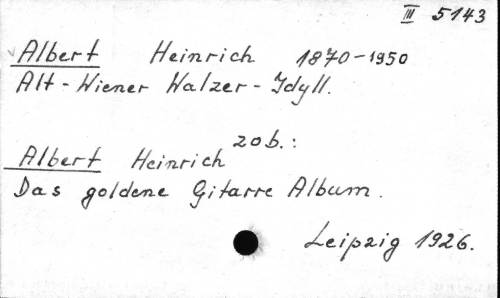 III 5143
Albert Heinrich 1870-1950
Alt-Wiener Walzer-Idyll.
zob.:
Albert Heinrich
Das goldene Gitarre Album.
Leipzig 1926.